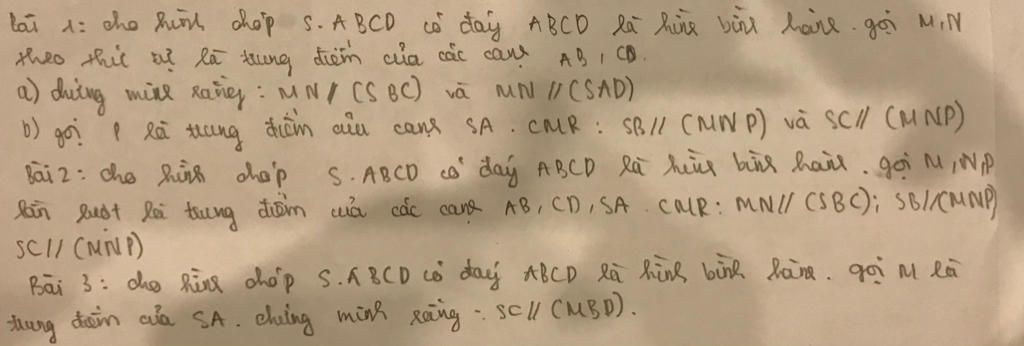 Bài 1: cho hình chóp S.ABCD có đáy ABCD là hình bình hành. gọi M,N
theo thứ tự là trung điểm của các cạnh AB, CD.
a) chứng minh rằng: MN // (SBC) và MN // (SAD)
b) gọi P là trung điểm của cạnh SA. CMR: SB // (MNP) và SC // (MNP)
Bài 2: cho hình chóp S.ABCD có đáy ABCD là hình bình hành. gọi M,N,P
lần lượt là trung điểm của các cạnh AB, CD, SA. CMR: MN // (SBC); SB // (MNP)
SC // (MNP)
Bài 3: cho hình chóp S.ABCD có đáy ABCD là hình bình hành. gọi M là
trung điểm của SA. chứng minh rằng: SC // (MBD).